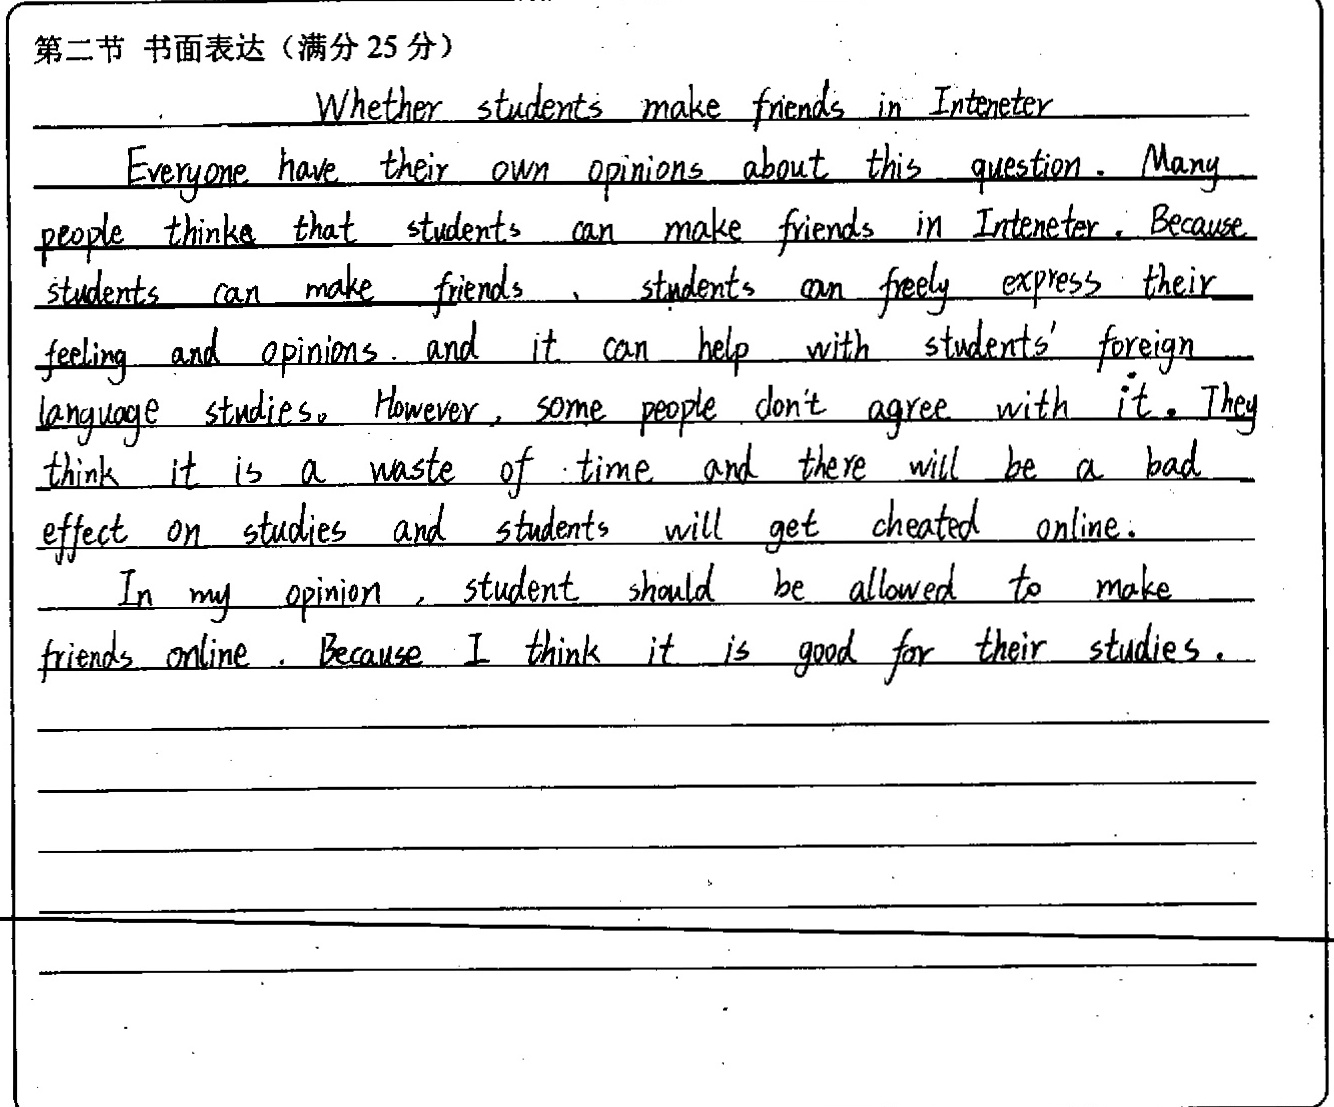 第二节 书面表达（满分 25 分）
Whether students make friends in Inteneter
Everyone have their own opinions about this question. Many
people thinke that students can make friends in Inteneter. Because
students can make friends, students can freely express their
feeling and opinions. and it can help with students' foreign
language studies。 However, some people don't agree with it. They
think it is a waste of time and there will be a bad
effect on studies and students will get cheated online.
In my opinion, student should be allowed to make
friends online. Because I think it is good for their studies.